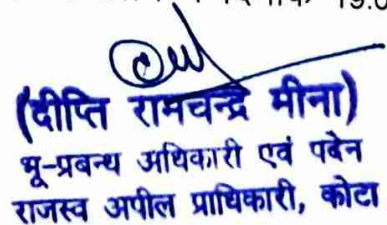 दिनांक 19.0
(दीप्ति रामचन्द्र मीना)
भू-प्रबन्ध अधिकारी एवं पदेन
राजस्व अपील प्राधिकारी, कोटा